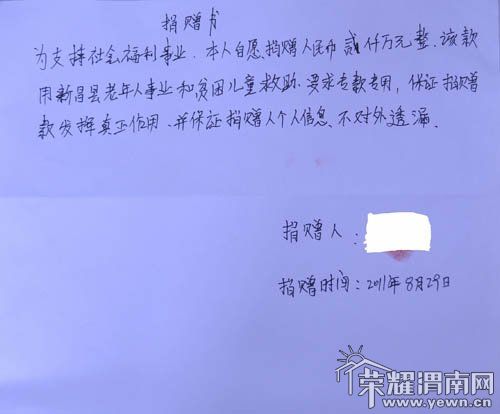 捐赠书
为支持社会福利事业.本人自愿捐赠人民币贰仟万元整.该款
用新昌县老年人事业和贫困儿童救助.要求专款专用,保证捐赠
款发挥真正作用.并保证捐赠人个人信息.不对外透漏.
捐赠人:
捐赠时间:2011年8月29日
荣耀渭南网
www.yewn.cn